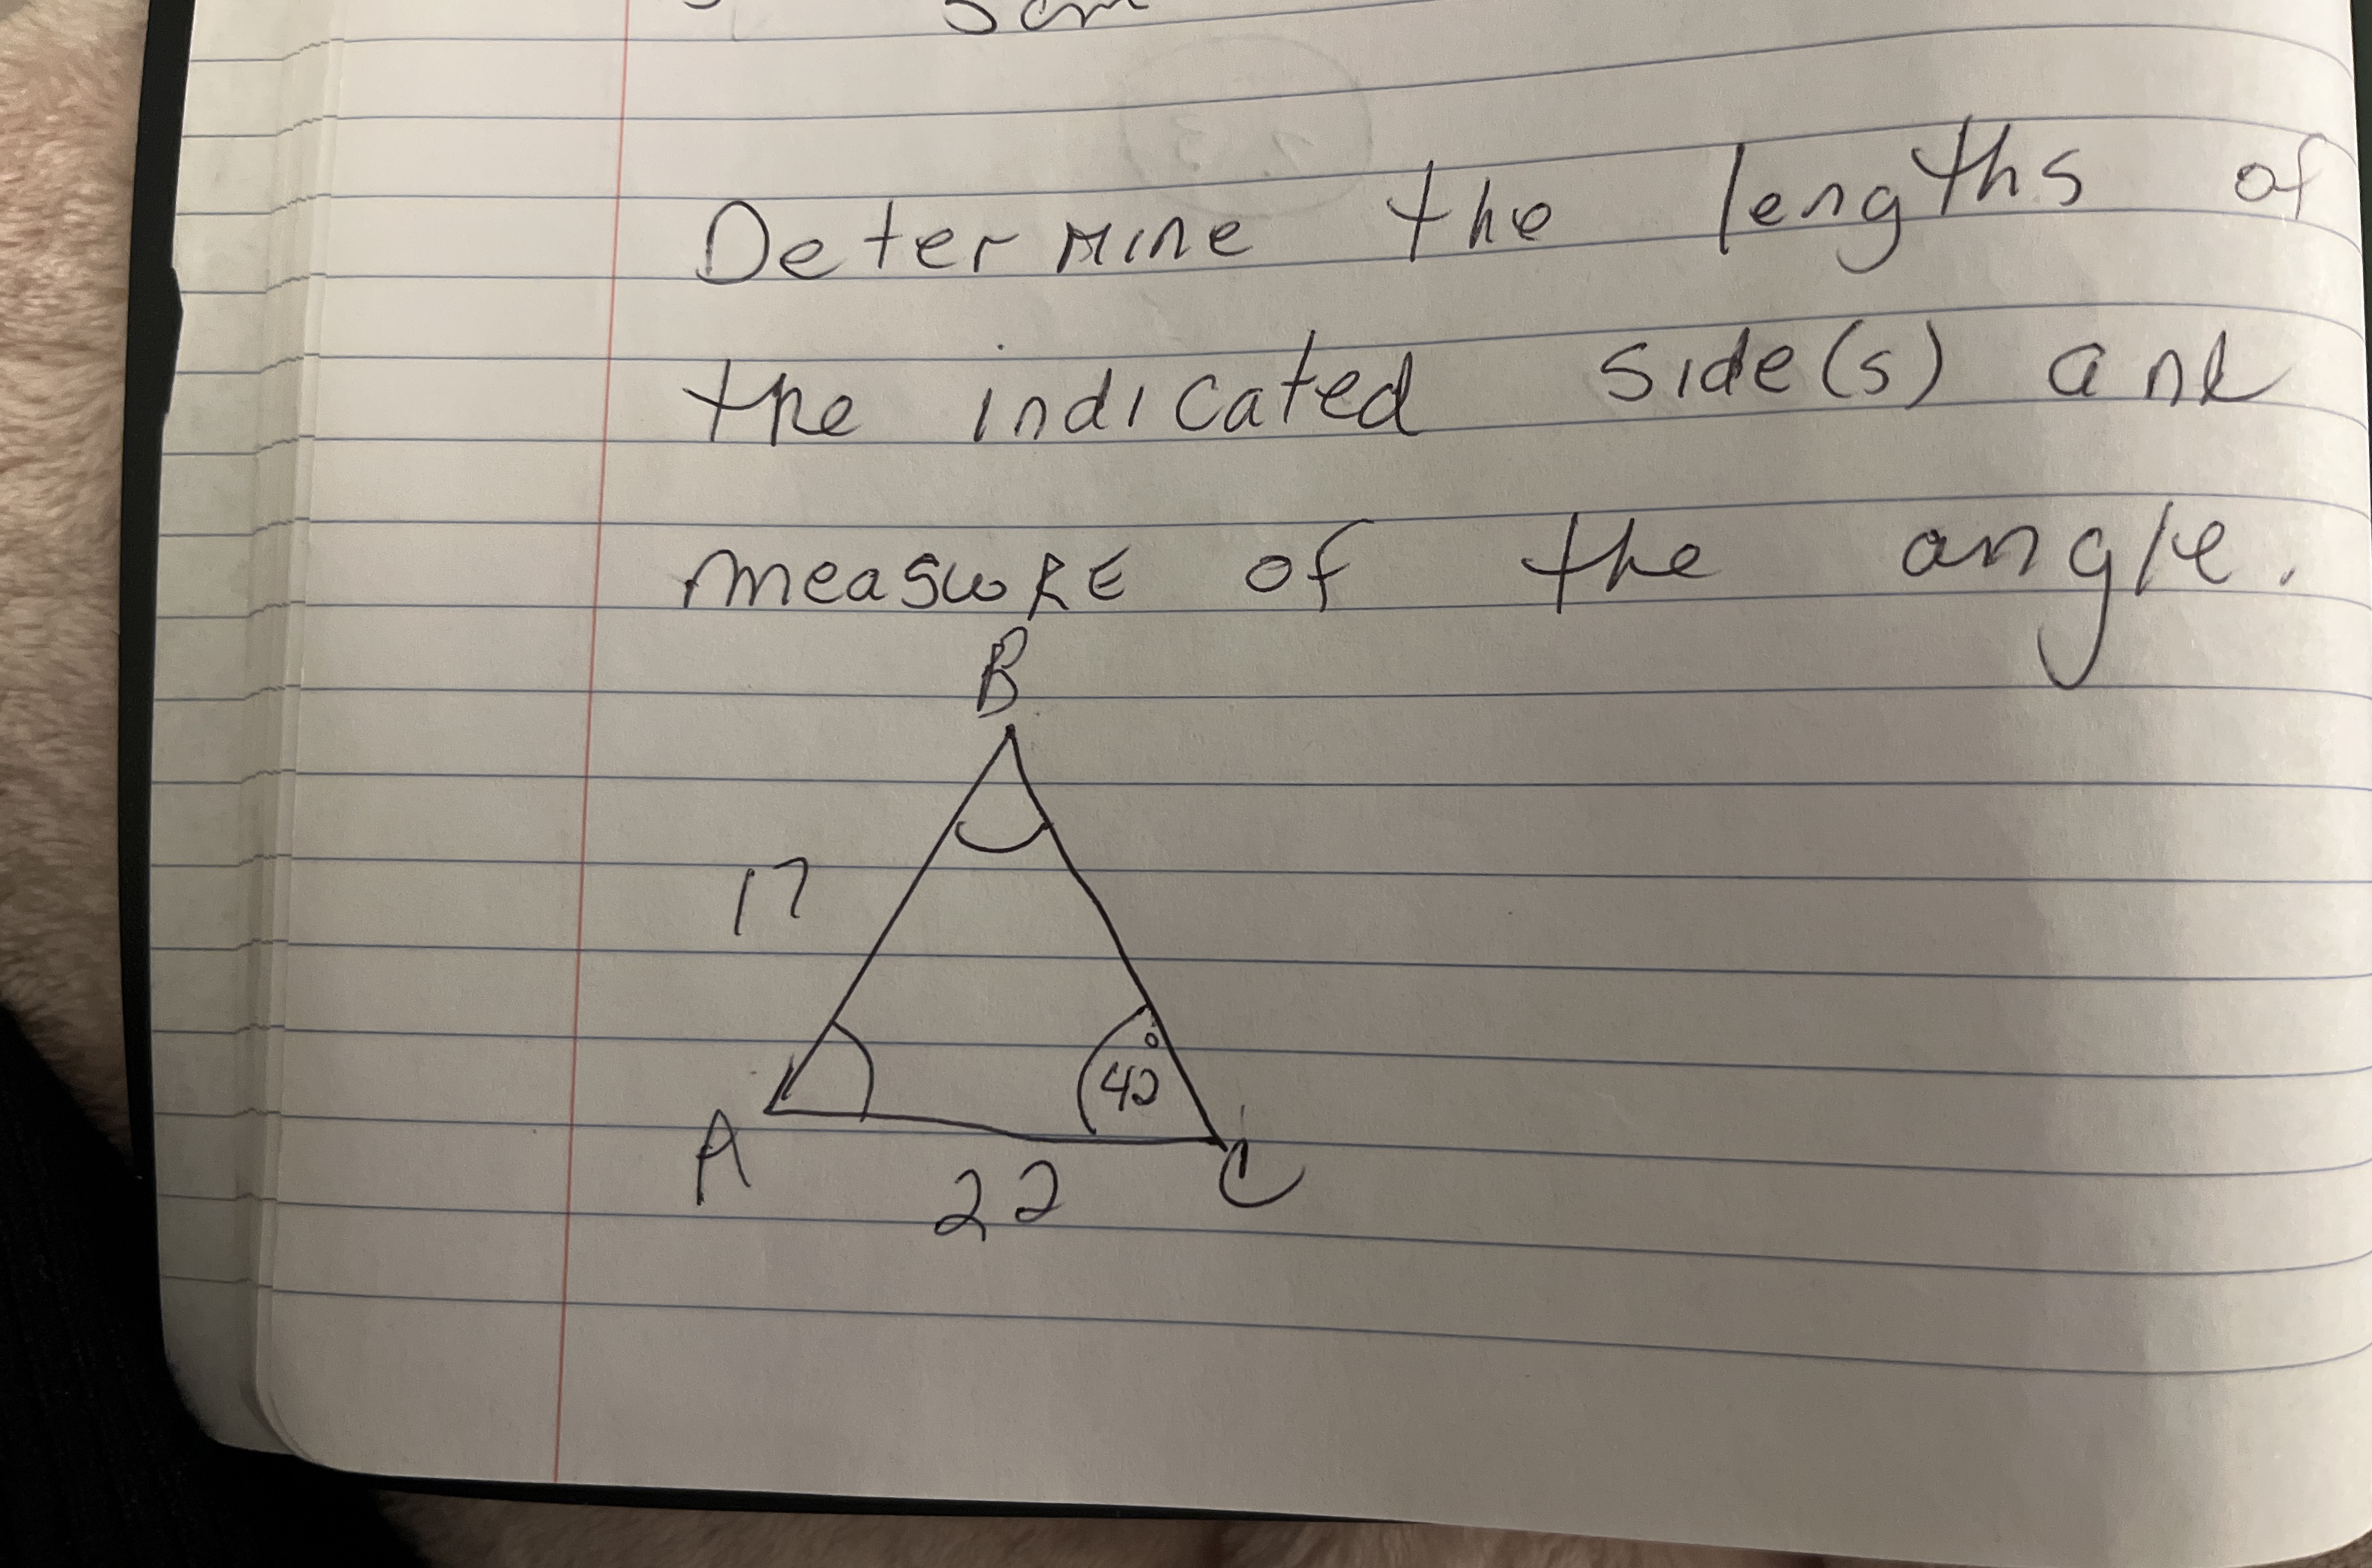 5cm
Determine the lengths of
the indicated side(s) and
measure of the angle.
B
17
42°
A
C
22